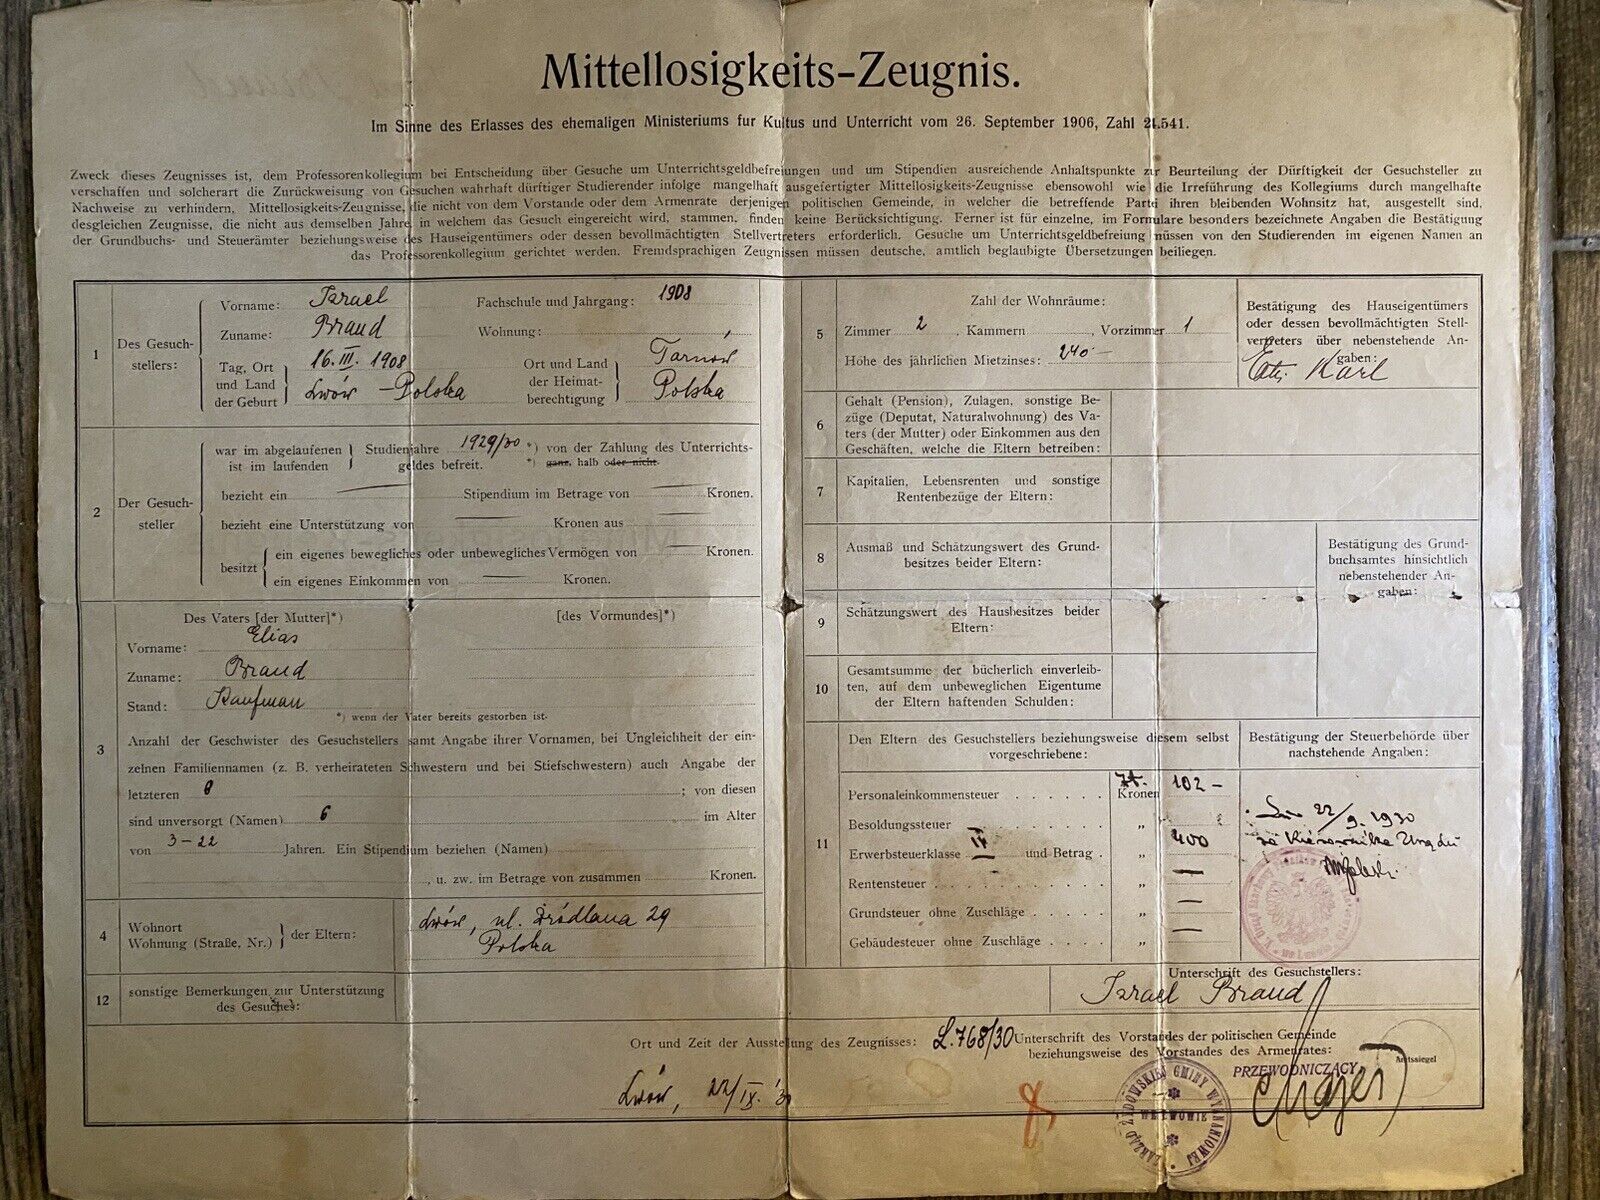 Mittellosigkeits-Zeugnis.
Im Sinne des Erlasses des ehemaligen Ministeriums fur Kultus und Unterricht vom 26. September 1906, Zahl 24.541.
Zweck dieses Zeugnisses ist, dem Professorenkollegium bei Entscheidung über Gesuche um Unterrichtsgeldbefreiungen und um Stipendien ausreichende Anhaltspunkte zur Beurteilung der Dürftigkeit der Gesuchsteller zu
verschaffen und solcherart die Zurückweisung von Gesuchen wahrhaft dürftiger Studierender infolge mangelhaft ausgefertigter Mittellosigkeits-Zeugnisse ebensowohl wie die Irreführung des Kollegiums durch mangelhafte
Nachweise zu verhindern. Mittellosigkeits-Zeugnisse, die nicht von dem Vorstande oder dem Armenrate derjenigen politischen Gemeinde, in welcher die betreffende Partei ihren bleibenden Wohnsitz hat, ausgestellt sind,
desgleichen Zeugnisse, die nicht aus demselben Jahre, in welchem das Gesuch eingereicht wird, stammen, finden keine Berücksichtigung. Ferner ist für einzelne, im Formulare besonders bezeichnete Angaben die Bestätigung
der Grundbuchs- und Steuerämter beziehungsweise des Hauseigentümers oder dessen bevollmächtigten Stellvertreters erforderlich. Gesuche um Unterrichtsgeldbefreiung müssen von den Studierenden im eigenen Namen an
das Professorenkollegium gerichtet werden. Fremdsprachigen Zeugnissen müssen deutsche, amtlich beglaubigte Übersetzungen beiliegen.
1
Des Gesuch-
stellers:
Vorname: Izrael
Zuname: Brand
Tag, Ort
und Land
der Geburt
16. III. 1908
Lwów - Polska
Fachschule und Jahrgang: 1908
Wohnung:
Ort und Land
der Heimat-
berechtigung
Tarnów
Polska
2
Der Gesuch-
steller
war im abgelaufenen
ist im laufenden
Studienjahre 1929/30 *) von der Zahlung des Unterrichts-
geldes befreit. *) ganz, halb oder nicht.
bezieht ein — Stipendium im Betrage von — Kronen.
bezieht eine Unterstützung von — Kronen aus —
besitzt
ein eigenes bewegliches oder unbewegliches Vermögen von — Kronen.
ein eigenes Einkommen von — Kronen.
3
Des Vaters [der Mutter]*) [des Vormundes]*)
Vorname: Elias
Zuname: Brand
Stand: Kaufman
*) wenn der Vater bereits gestorben ist.
Anzahl der Geschwister des Gesuchstellers samt Angabe ihrer Vornamen, bei Ungleichheit der ein-
zelnen Familiennamen (z. B. verheirateten Schwestern und bei Stiefschwestern) auch Angabe der
letzteren 8 ; von diesen
sind unversorgt (Namen) 6 im Alter
von 3-22 Jahren. Ein Stipendium beziehen (Namen)
, u. zw. im Betrage von zusammen Kronen.
4
Wohnort
Wohnung (Straße, Nr.)
der Eltern:
Lwów, ul. Źródlana 29
Polska
12
sonstige Bemerkungen zur Unterstützung
des Gesuches:
5
Zahl der Wohnräume:
Zimmer 2, Kammern , Vorzimmer 1
Höhe des jährlichen Mietzinses: 240 -
Bestätigung des Hauseigentümers
oder dessen bevollmächtigten Stell-
vertreters über nebenstehende An-
gaben:
Karl
6
Gehalt (Pension), Zulagen, sonstige Be-
züge (Deputat, Naturalwohnung) des Va-
ters (der Mutter) oder Einkommen aus den
Geschäften, welche die Eltern betreiben:
7
Kapitalien, Lebensrenten und sonstige
Rentenbezüge der Eltern:
8
Ausmaß und Schätzungswert des Grund-
besitzes beider Eltern:
Bestätigung des Grund-
buchsamtes hinsichtlich
nebenstehender An-
gaben:
9
Schätzungswert des Hausbesitzes beider
Eltern:
10
Gesamtsumme der bücherlich einverleib-
ten, auf dem unbeweglichen Eigentume
der Eltern haftenden Schulden:
11
Den Eltern des Gesuchstellers beziehungsweise diesem selbst
vorgeschriebene:
Personaleinkommensteuer . . . . . . Kronen 102 -
Besoldungssteuer . . . . . . „
Erwerbsteuerklasse IV und Betrag . „ 400
Rentensteuer . . . . . . „ —
Grundsteuer ohne Zuschläge . . . . „ —
Gebäudesteuer ohne Zuschläge . . . . „ —
Bestätigung der Steuerbehörde über
nachstehende Angaben:
22/9. 1930
za Kierownika Urzędu
Unterschrift des Gesuchstellers:
Izrael Brand
Ort und Zeit der Ausstellung des Zeugnisses: L. 768/30
Lwów, 22/IX. '30
Unterschrift des Vorstandes der politischen Gemeinde
beziehungsweise des Vorstandes des Armenrates:
PRZEWODNICZĄCY
Chajes
Amtssiegel
ZARZĄD ŻYDOWSKIEJ GMINY WYZNANIOWEJ
WE LWOWIE